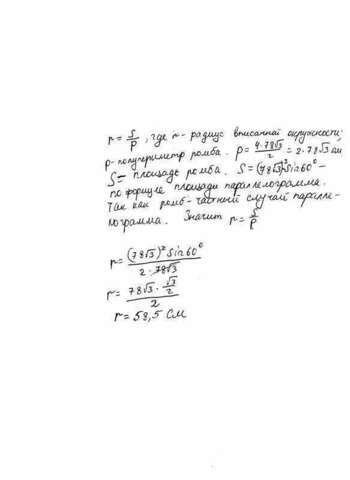 r = S/p, где r - радиус вписанной окружности.
p - полупериметр ромба. p = 4·78√3/2 = 2·78√3 см
S = площадь ромба. S = (78√3)² Sin60° -
по формуле площади параллелограмма.
Так как ромб - частный случай паралле-
лограмма. Значит r = S/p
r = (78√3)² Sin60°/2·78√3
r = 78√3 · √3/2/2
r = 58,5 см